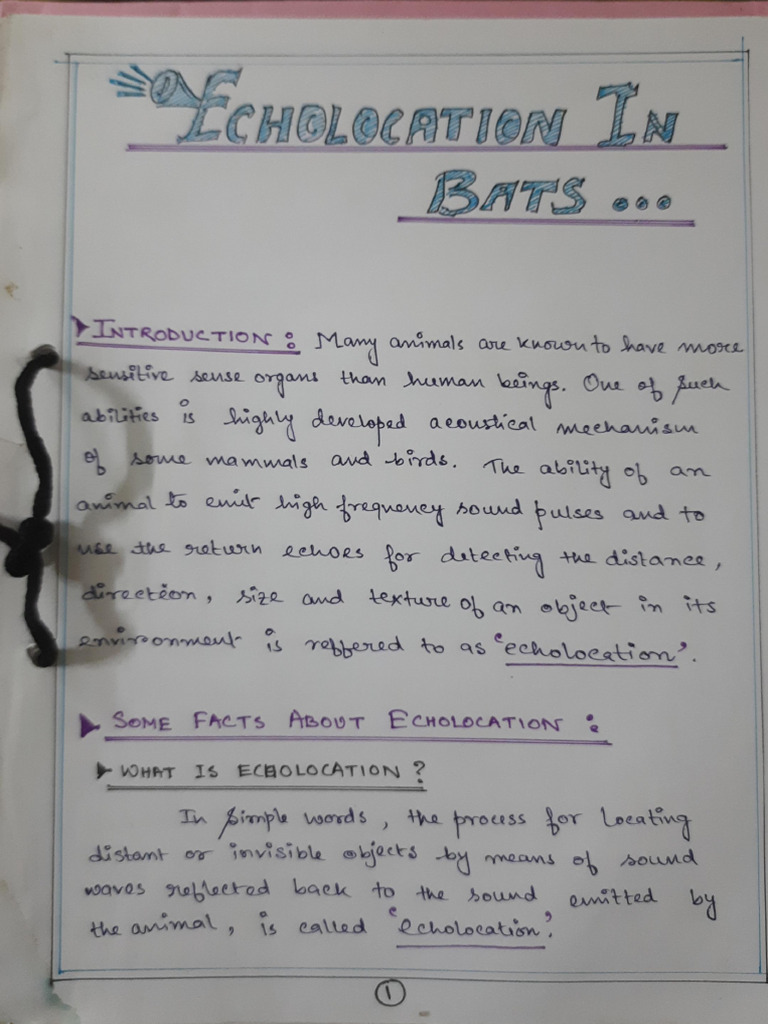 ECHOLOCATION IN
BATS ...
INTRODUCTION : Many animals are known to have more
sensitive sense organs than human beings. One of such
abilities is highly developed acoustical mechanism
of some mammals and birds. The ability of an
animal to emit high frequency sound pulses and to
use the return echoes for detecting the distance,
direction, size and texture of an object in its
environment is reffered to as 'echolocation'.
SOME FACTS ABOUT ECHOLOCATION :
WHAT IS ECHOLOCATION ?
In simple words, the process for locating
distant or invisible objects by means of sound
waves reflected back to the sound emitted by
the animal, is called 'echolocation'.
1